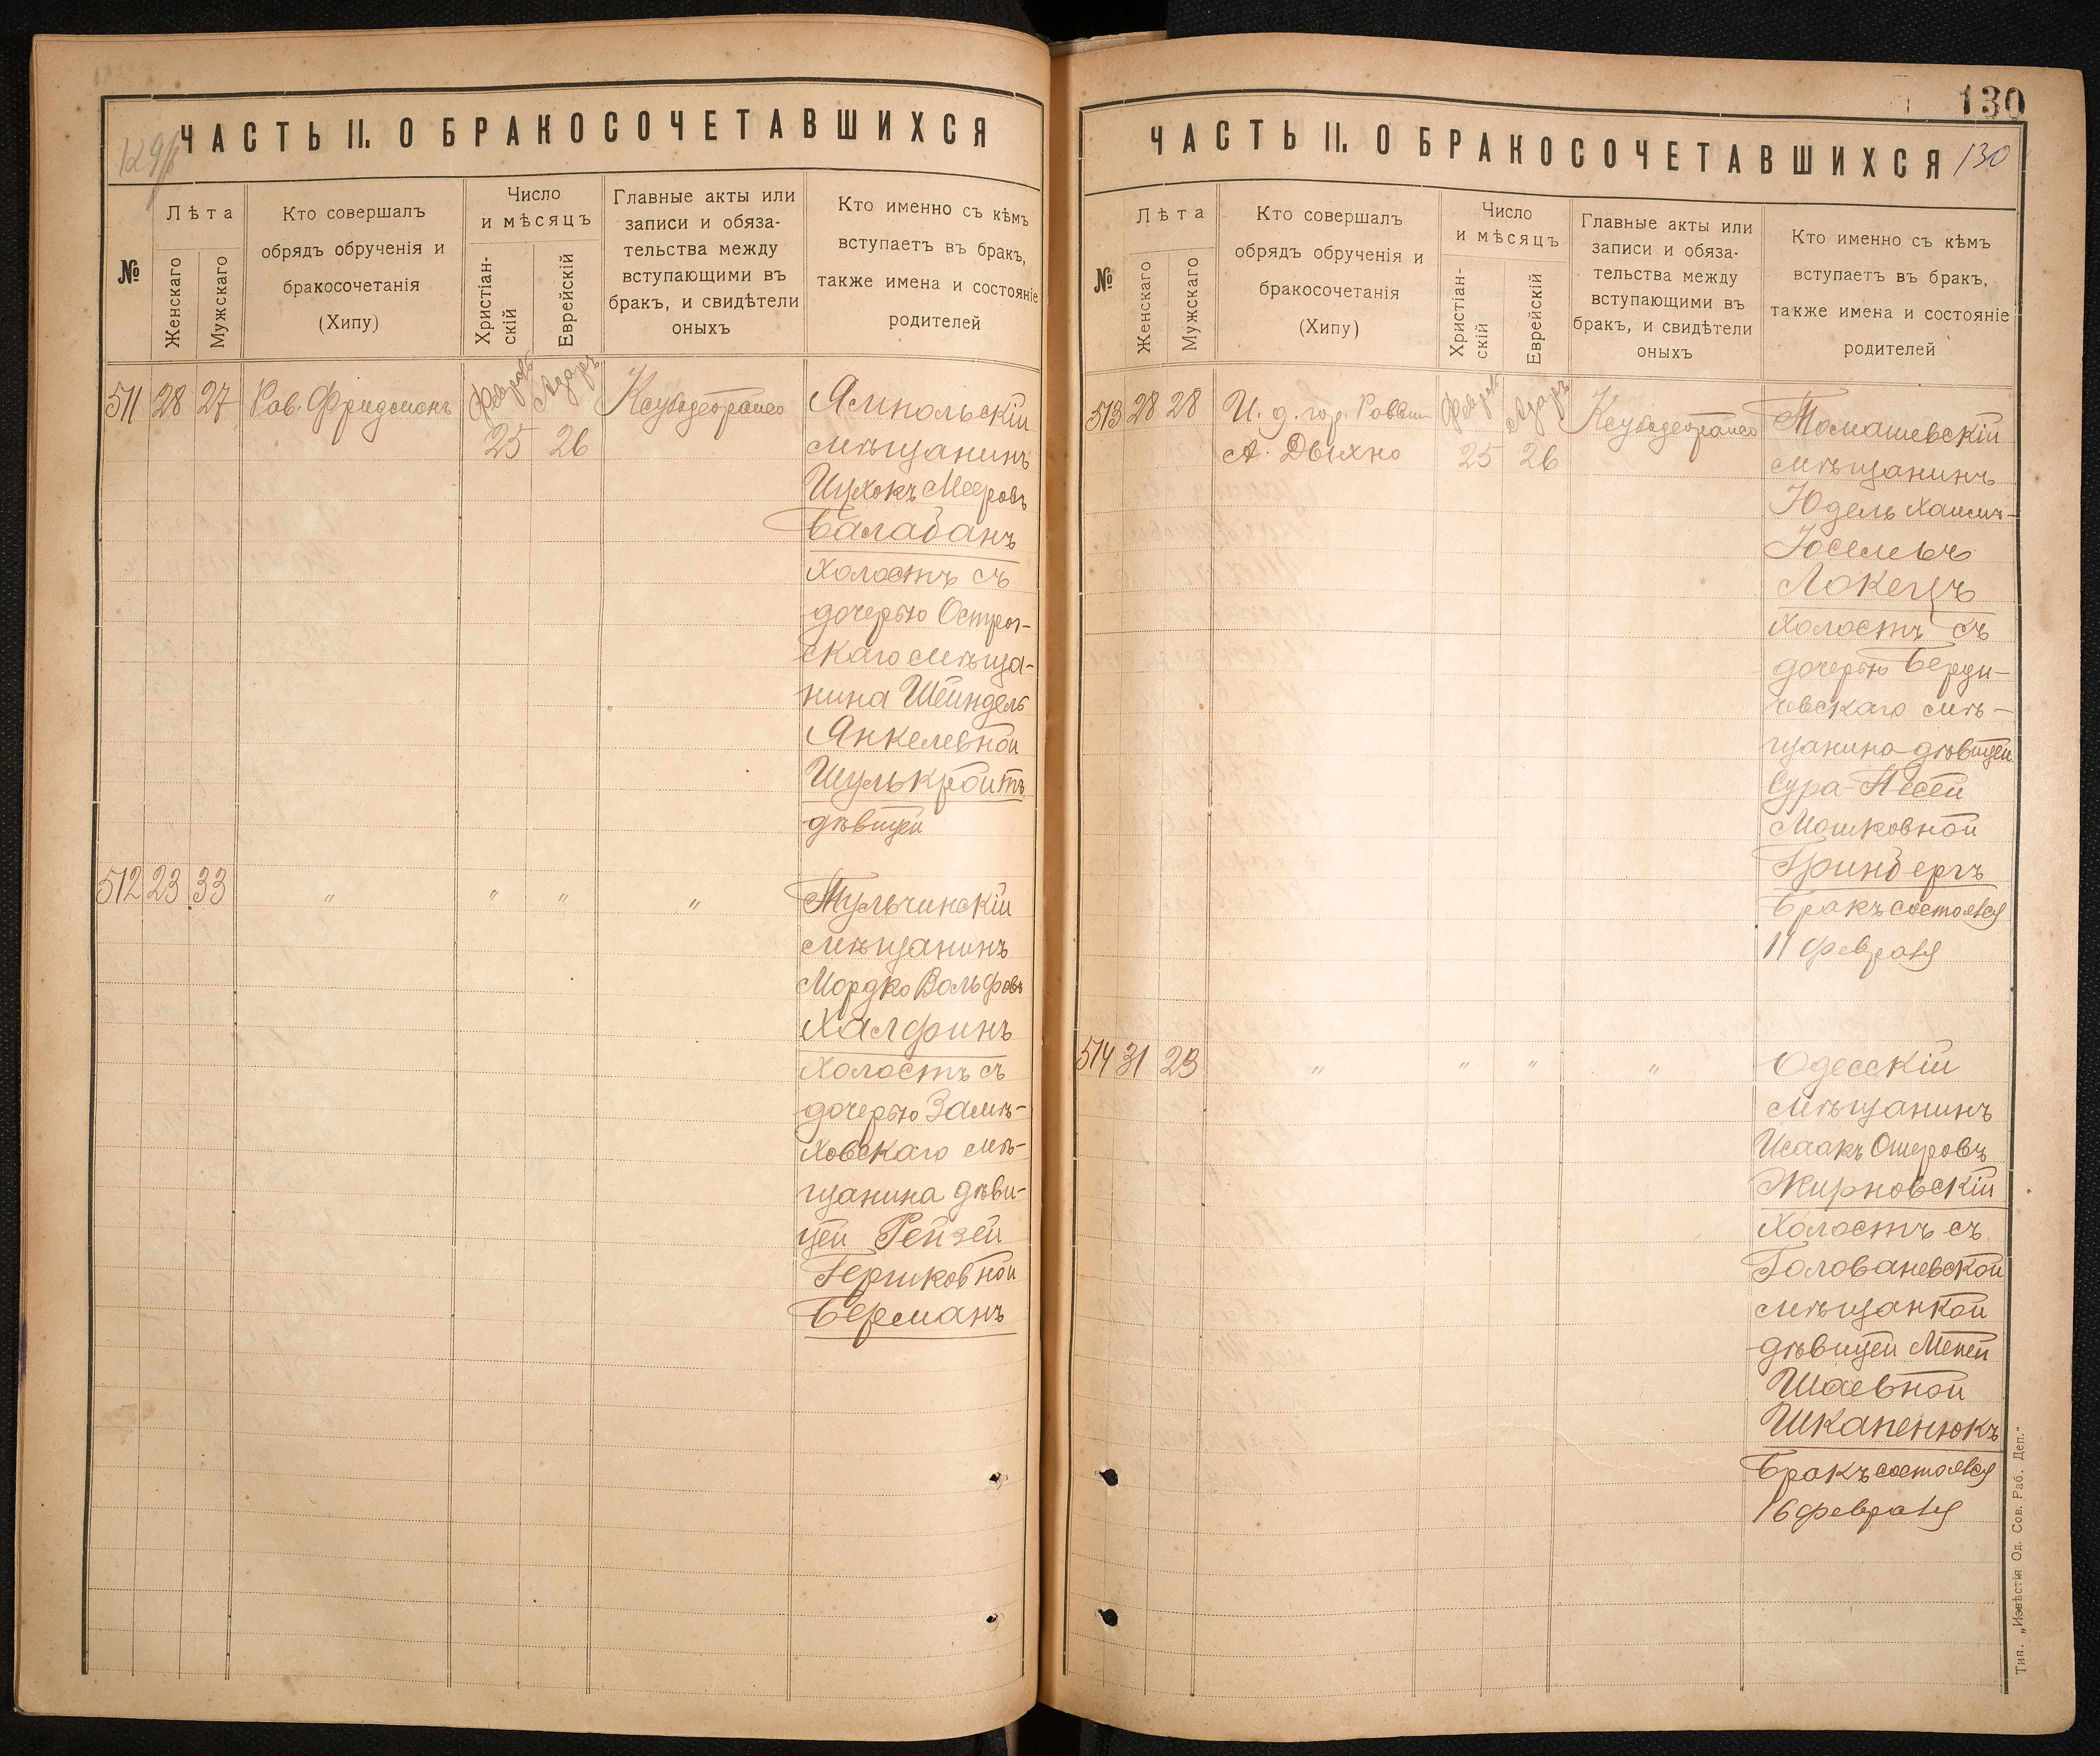 129/б
ЧАСТЬ II. О БРАКОСОЧЕТАВШИХСЯ
№
Лѣта
Женскаго
Мужскаго
Кто совершалъ
обрядъ обрученія и
бракосочетанія
(Хипу)
Число
и мѣсяцъ
Христіан-
скій
Еврейскій
Главные акты или
записи и обяза-
тельства между
вступающими въ
бракъ, и свидѣтели
оныхъ
Кто именно съ кѣмъ
вступаетъ въ бракъ,
также имена и состояніе
родителей
511 28 27 Рав. Фридманъ
Февраль 25
Адаръ 26
Ямпольскій
мѣщанинъ
Ицхокъ Мееровъ
Балабанъ
холостъ съ
дочерью Острог-
скаго мѣща-
нина Шейндель
Янкелевной
Шулькройтъ
дѣвицей
512 23 33 " " " "
Тульчинскій
мѣщанинъ
Мордко Вольфовъ
Халфинъ
холостъ съ
дочерью Замѣ-
ховскаго мѣ-
щанина дѣви-
цей Рейзей
Гершковной
Берманъ
130
ЧАСТЬ II. О БРАКОСОЧЕТАВШИХСЯ 130
№
Лѣта
Женскаго
Мужскаго
Кто совершалъ
обрядъ обрученія и
бракосочетанія
(Хипу)
Число
и мѣсяцъ
Христіан-
скій
Еврейскій
Главные акты или
записи и обяза-
тельства между
вступающими въ
бракъ, и свидѣтели
оныхъ
Кто именно съ кѣмъ
вступаетъ въ бракъ,
также имена и состояніе
родителей
513 28 28 И. д. гор. Раввин
А. Дыхно
Февраль 25
Адаръ 26
Томашевскій
мѣщанинъ
Юдель Хаимъ-
Иоселевъ
Локецъ
холостъ съ
дочерью Берди-
чевскаго мѣ-
щанина дѣвицей
Сура-Песей
Мошковной
Гринбергъ
Бракъ состоялся
11 февраля
514 31 23 " " " "
Одесскій
мѣщанинъ
Исаакъ Ошеровъ
Жирновскій
холостъ съ
Голованевской
мѣщанкой
дѣвицей Меней
Шаевной
Шкапенюкъ
Бракъ состоялся
16 февраля
Тип. „Извѣстія Од. Сов. Раб. Деп."